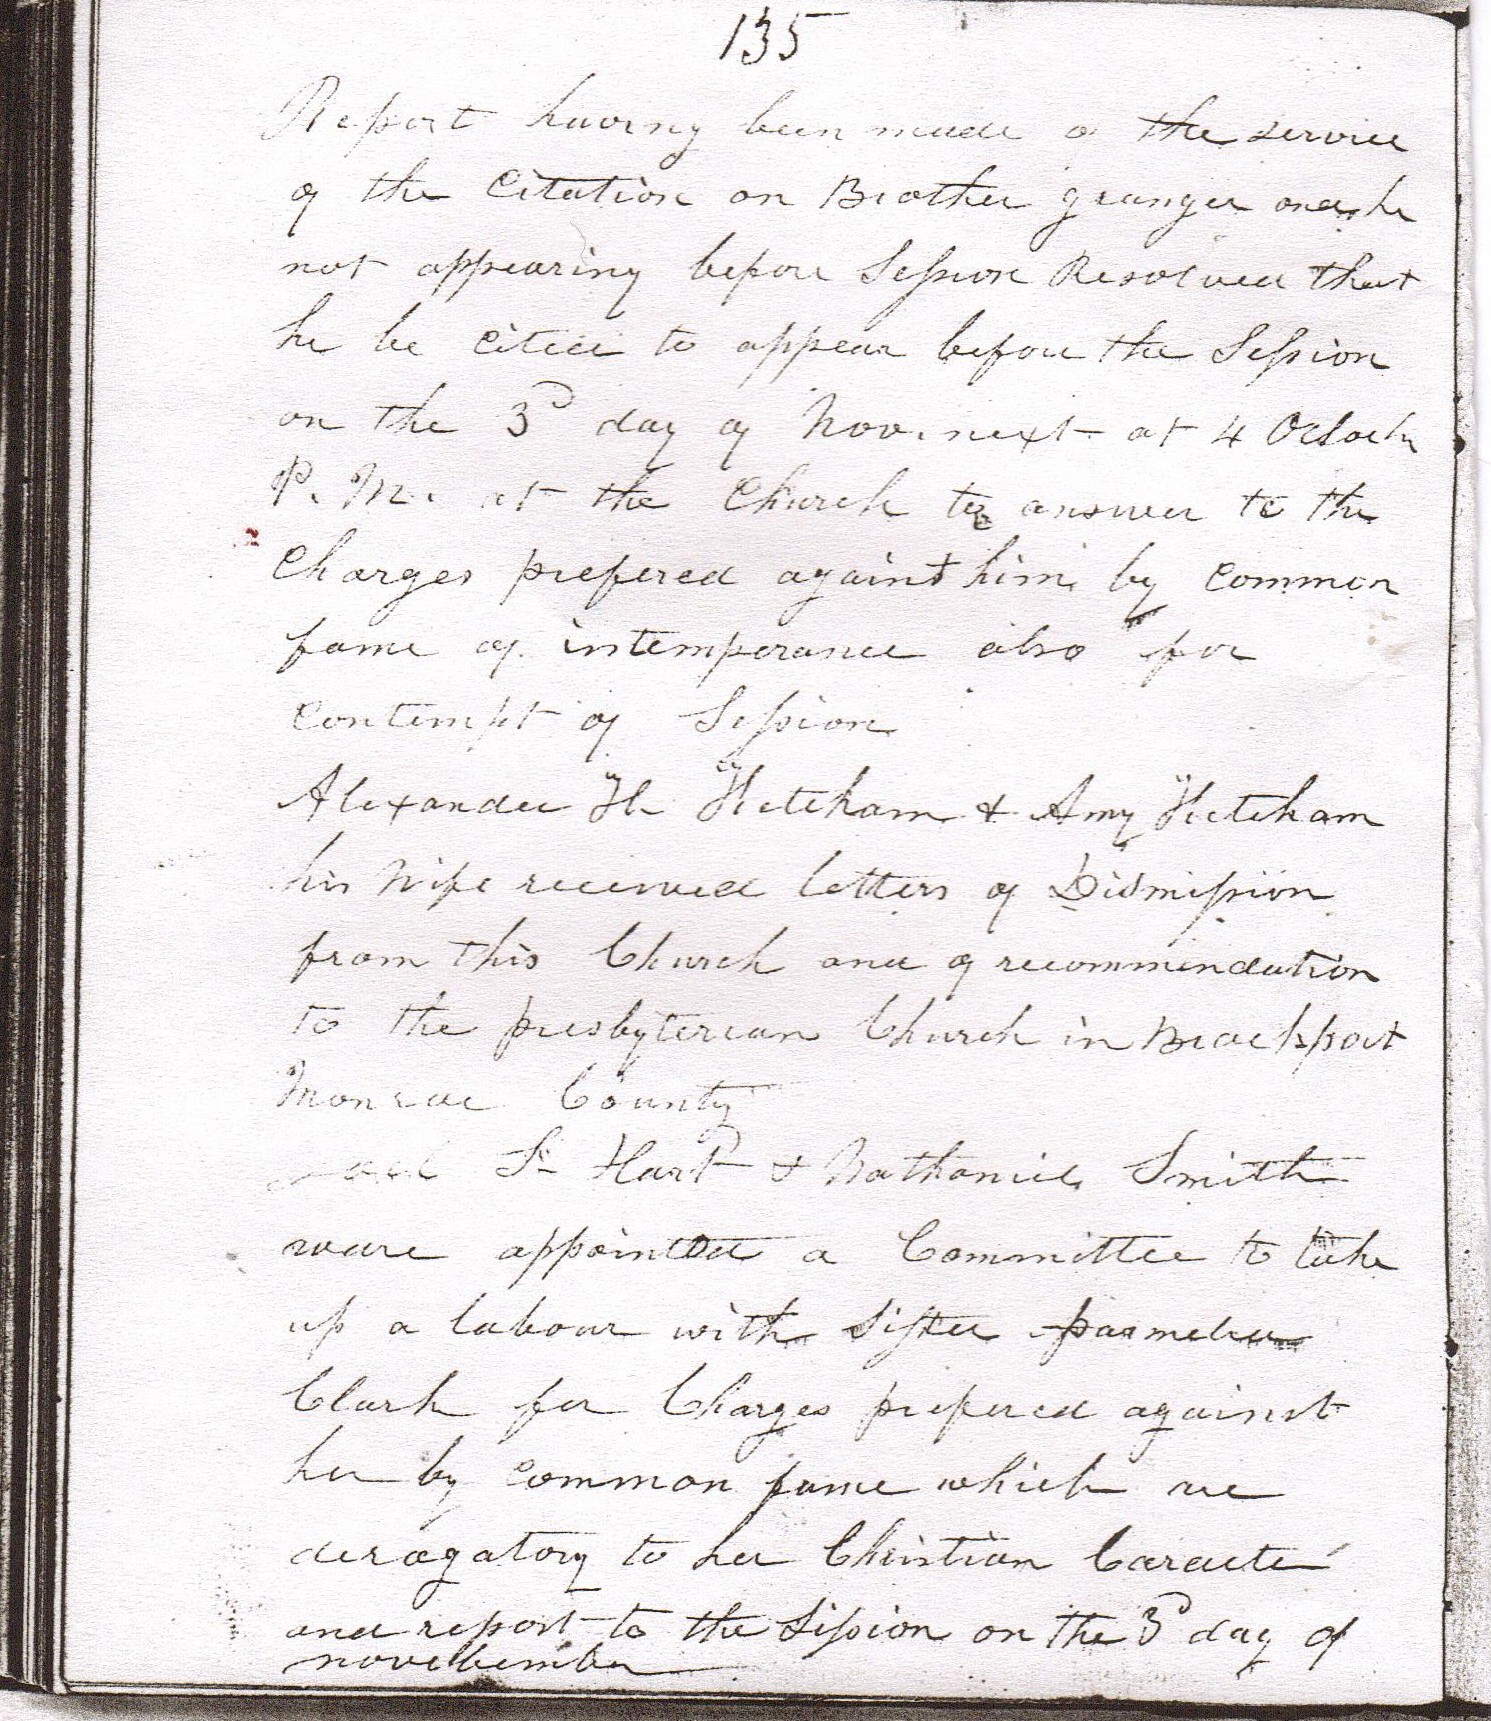 135
Report having been made o the service
of the Citation on Brother granger and he
not appearing before Session Resolved that
he be cited to appear before the Session
on the 3d day of Nov. next at 4 Oclock
P. M. at the Church to answer to the
Charges prefered against him by common
fame of intemperance also for
contempt of Session
Alexander H Ketcham & Amy Ketcham
his Wife received letters of Dismission
from this Church and of recommendation
to the presbyterian Church in Brockport
Monroe County
S. Hart & Nathaniel Smith
ware appointed a Committee to take
up a labour with Sister
Clark for Charges prefered against
her by common fame which are
derogatory to her Christian Caracter
and report to the Session on the 3d day of